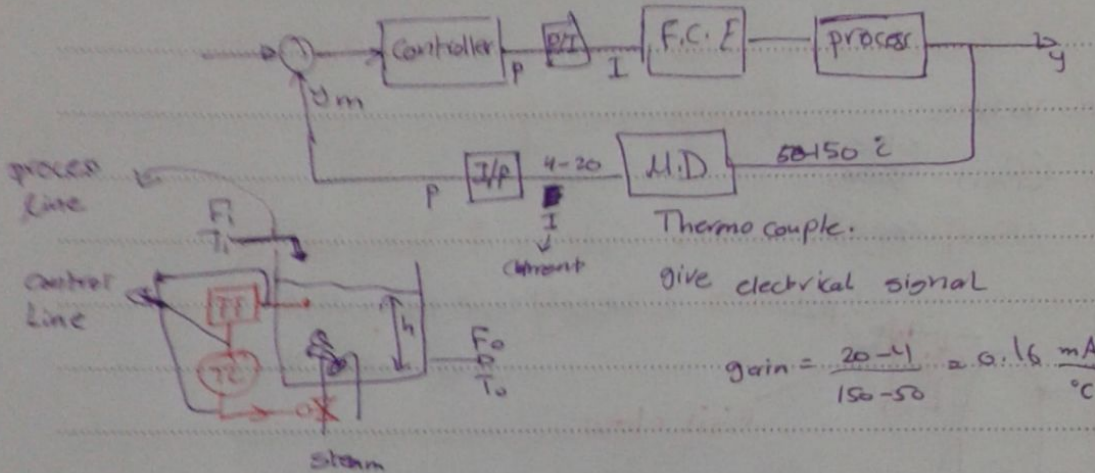 Controller
P
P/I
I
F.C.E
process
y
ym
P
I/P
4-20
I
current
M.D
50-150 °C
Thermo couple.
give electrical signal
process
Line
Fi
Ti
control
Line
TC
h
Fo
To
steam
gain = 20-4 / 150-50 = 0.16 mA / °C